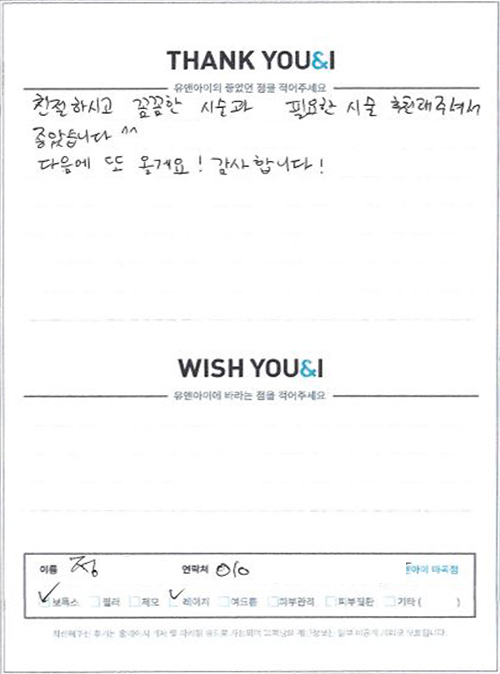 THANK YOU&I
유앤아이의 좋았던 점을 적어주세요
친절하시고 꼼꼼한 시술과 필요한 시술 추천해주셔서
좋았습니다 ^^
다음에 또또 올게요! 감사합니다!
WISH YOU&I
유앤아이에 바라는 점을 적어주세요
이름 정 연락처 010 앤아이 마곡점
보톡스 필러 제모 레이저 여드름 피부관리 피부질환 기타 ( )